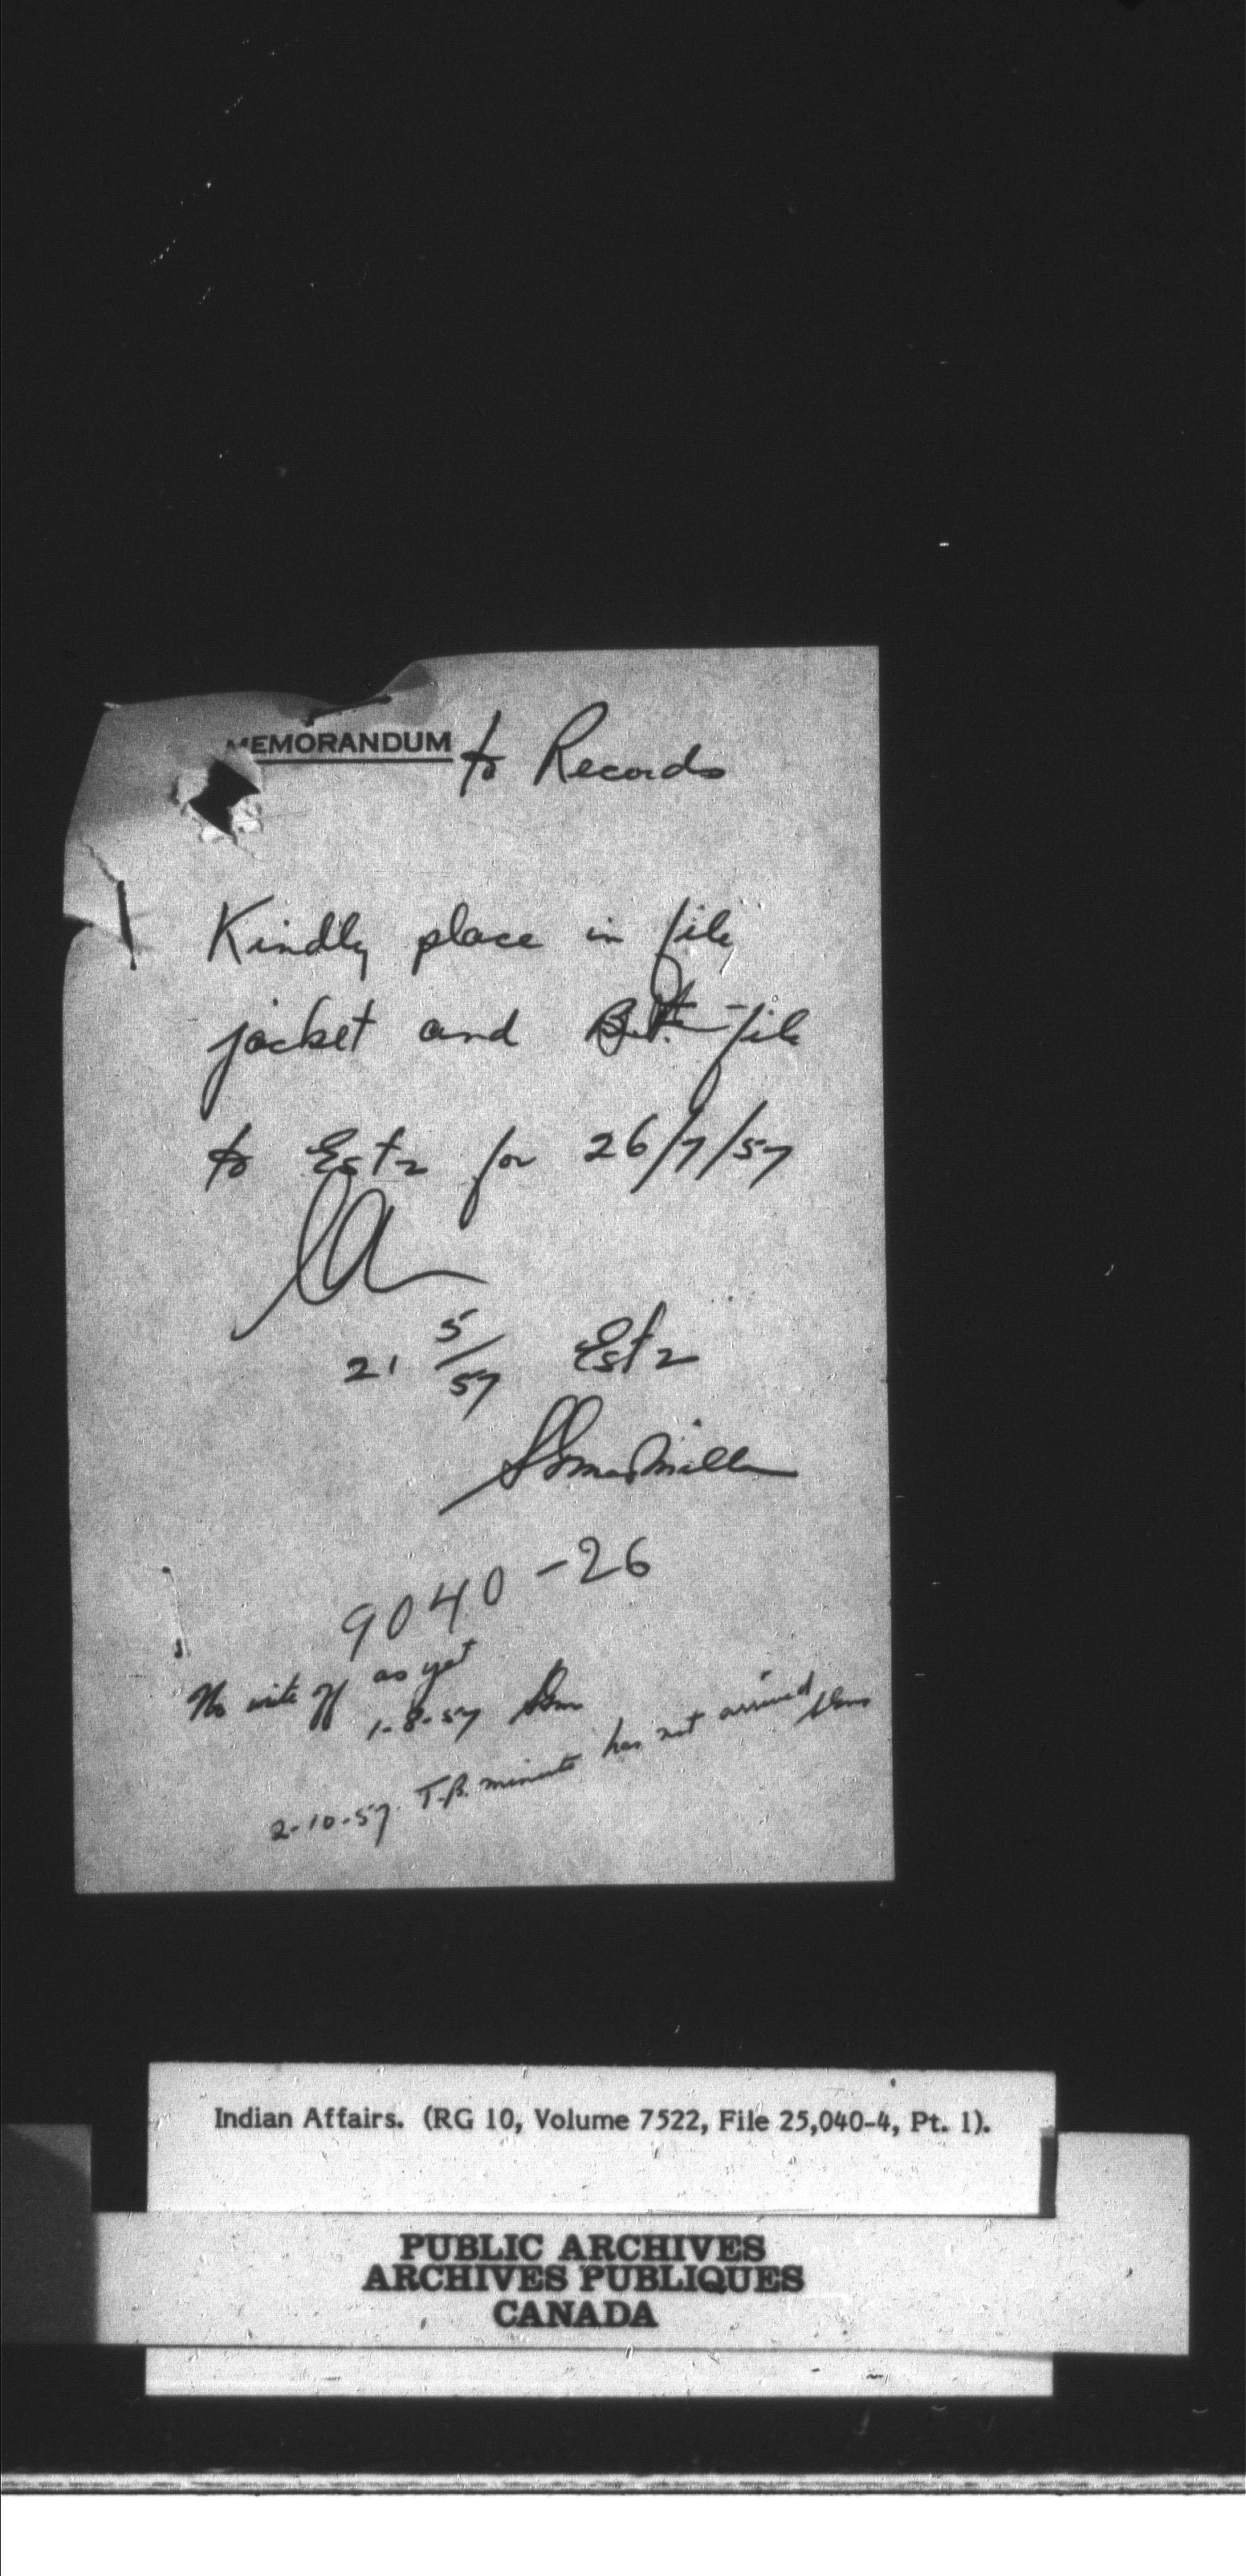 MEMORANDUM to Records
Kindly place in file
jacket and B.F. file
to Est 2 for 26/7/57
21 5/57 Est 2
9040-26
No write off as yet
1-8-57
2-10-57. T.B. minute has not arrived
Indian Affairs. (RG 10, Volume 7522, File 25,040-4, Pt. 1).
PUBLIC ARCHIVES
ARCHIVES PUBLIQUES
CANADA